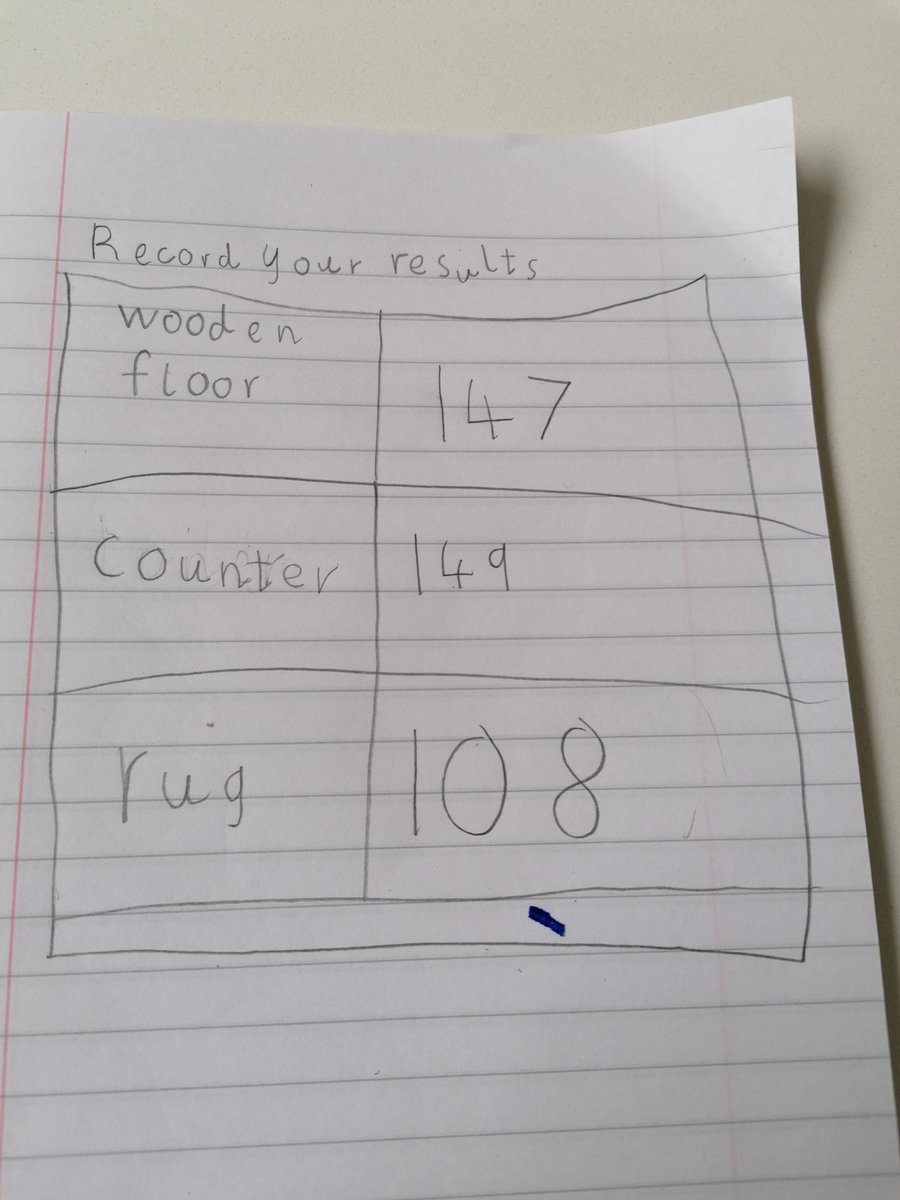 Record your results
wooden
floor
147
Counter
149
rug
108